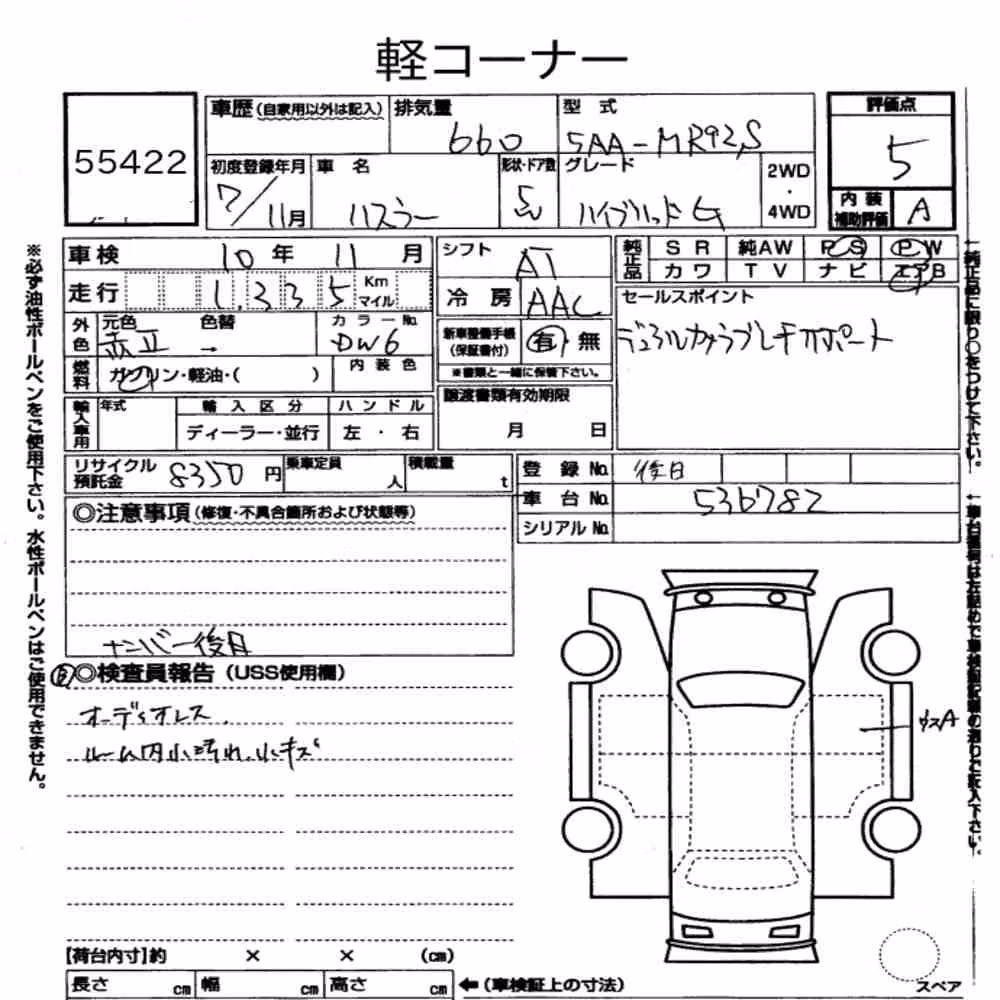 軽コーナー
55422
車歴 (自家用以外は記入)
排気量
660
型式
5AA-MR92S
評価点
5
初度登録年月
7/11月
車名
ハスラー
形状・ドア数
5
グレード
ハイブリッドG
2WD
・
4WD
内装
補助評価
A
車検
10年 11月
走行
1,335
Km
マイル
シフト
AT
冷房
AAC
純正品
SR
純AW
PS
PW
カワ
TV
ナビ
エアB
セールスポイント
デュアルカメラブレーキサポート
外色
元色
赤
色替
→
カラーNo.
DW6
燃料
ガソリン・軽油・( )
内装色
新車整備手帳
(保証書付)
有
無
※書類と一緒に保管下さい。
譲渡書類有効期限
月 日
輸入車用
年式
輸入区分
ハンドル
ディーラー・並行
左・右
リサイクル
預託金
8350円
乗車定員
人
積載量
t
登録No.
後日
車台No.
536782
シリアルNo.
◎注意事項 (修復・不具合箇所および状態等)
ナンバー後日
◎検査員報告 (USS使用欄)
オーディオレス
ルーム内小汚れ、小キズ
ウスA
【荷台内寸】約 × × (cm)
長さ cm
幅 cm
高さ cm
←(車検証上の寸法)
スペア
※必ず油性ボールペンをご使用下さい。水性ボールペンはご使用できません。
←純正品に限り○をつけて下さい。